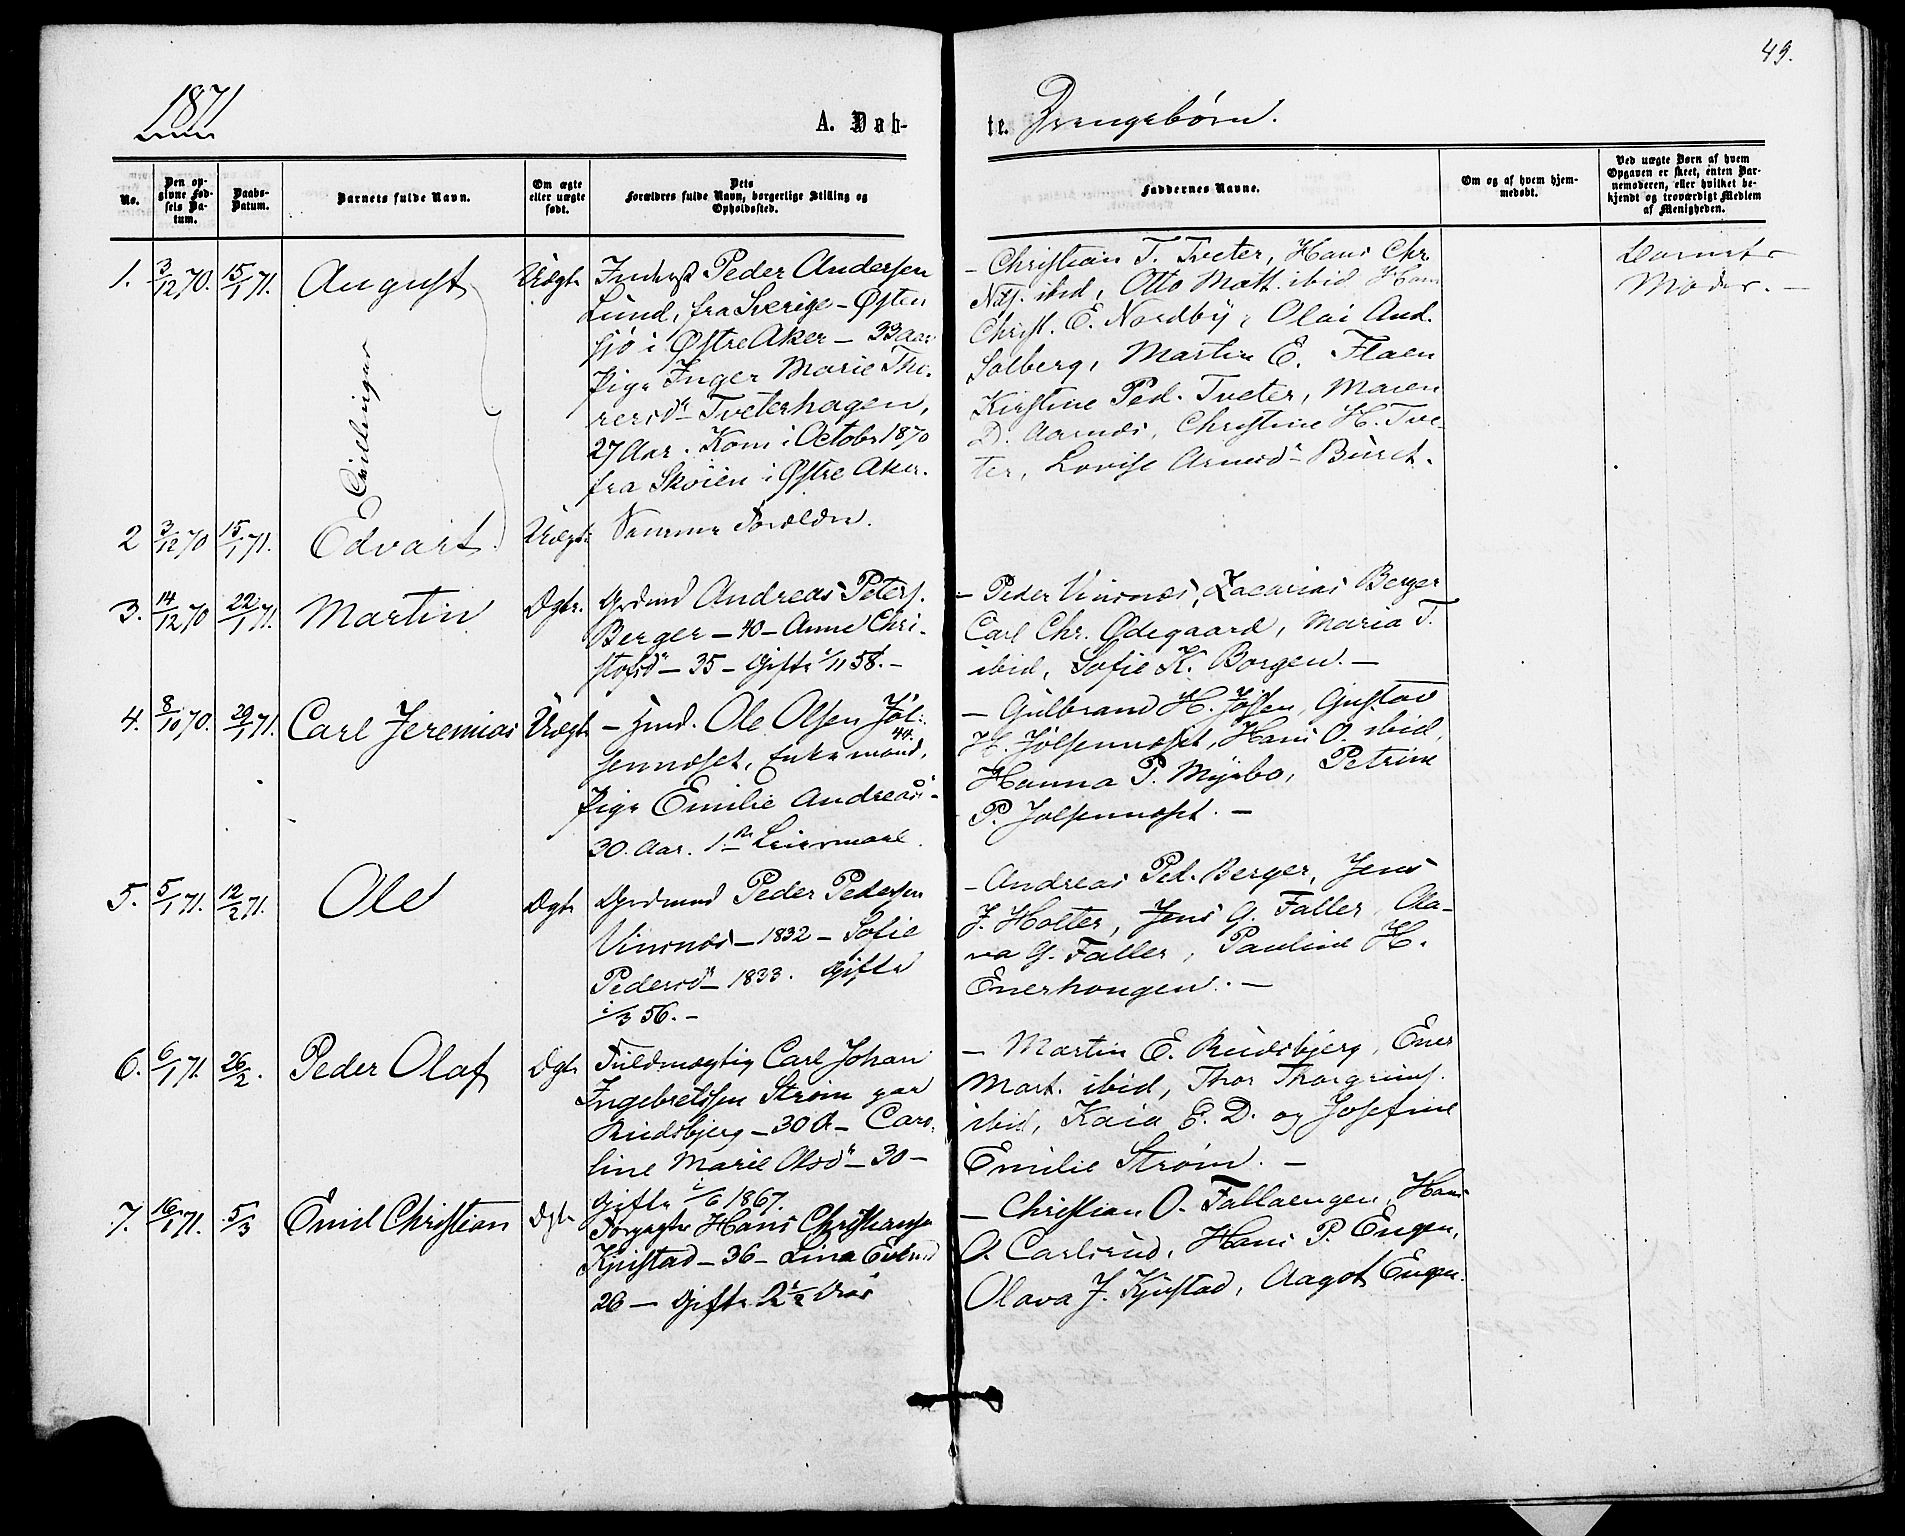 49.
1871
A. Døb-
te. Drengebørn.
No.
Den op-
givne Fød-
sels Da-
tum.
Daabs-
Datum.
Barnets fulde Navn.
Om ægte
eller uægte
født.
Dets
Forældres fulde Navn, borgerlige Stilling og
Opholdssted.
Faddernes Navne.
Om og af hvem hjem-
medøbt.
Ved uægte Børn af hvem
Opgaven er skeet, enten Bar-
nemoderen, eller hvilket be-
kjendt og troværdigt Medlem
af Menigheden.
1. 3/12 70. 15/1 71. August Uægte
Inderst Peder Andersen
Lund, fra Sverige - Østen
sjö i Østre Aker - 33 Aar
Pige Inger Marie Tho-
rersdr Tveterhagen,
27 Aar. Kom i Octobr 1870
fra Skøien i Østre Aker.
- Christian T. Tveter, Hans Chr.
ibid, Otto Matt. ibid Hans
Christ. E. Nordby, Olai And.
Solberg, Martin E. Flaen
Kirstine Ped. Tveter, Maren
D. Aarnæs, Christine H. Tve-
ter, Lovise Arnesdr
Barnets
Moder. -
Tvillinger
2 3/12 70 15/1 71. Edvart. Uægte Samme Forældre.
3. 14/12 70 22/1 71. Martin Ægte.
Grdmd Andreas Peters.
Berger - 40 - Anne Chri-
stofsdr - 35 - Gifte i/11 58. -
- Peder Vinsnæs, Zacarias Berger
Carl Chr. Ødegaard, Maria T.
ibid, Sofie K. Borgen. -
4. 8/10 70. 29/1 71. Carl Jeremias Uægte
- Hmd. Ole Olsen Jøl-
44.
sennæset, Enkemand,
Pige Emilie Andreasdr
30. Aar. 1ste Leiermaal.
- Gulbrand H. Jølsen, Gustav
H. Jølsennæset, Hans O. ibid,
Hanna P. Myrbo, Petrine
P. Jølsennæset. -
5. 5/1 71. 12/2 71. Ole Ægte
Grdmand Peder Pedersen
Vinsnæs - 1832 - Sofie
Pedersdr - 1833. Gifte
i/3 56. -
- Andreas Ped. Berger, Jens
J. Holter, Jens G. Faller, Ola-
va G. Faller, Pauline H.
Enerhougen. -
6. 6/1 71. 26/2. Peder Olaf Ægte
Fuldmægtig Carl Johan
Ingebretssen Strøm paa
Rudsbjerg - 30 A - Caro-
line Marie Olsdr - 30 -
Gifte i/6 1867.
- Martin E. Rudsbjerg, Ener
Mart. ibid, Thor Thorgrims.
ibid, Kaia E. D. og Josefine
Emilie Strøm. -
7. 16/1 71. 5/3 Emil Christian Ægte
Forpagter Hans Christiansen
Kjustad - 36 - Lina
26 - Gifte 2 1/2
- Christian O. Fallaengen, Hans
O. Carlsrud, Hans P. Engen,
Olava J. Kjustad, Aagot Engen.